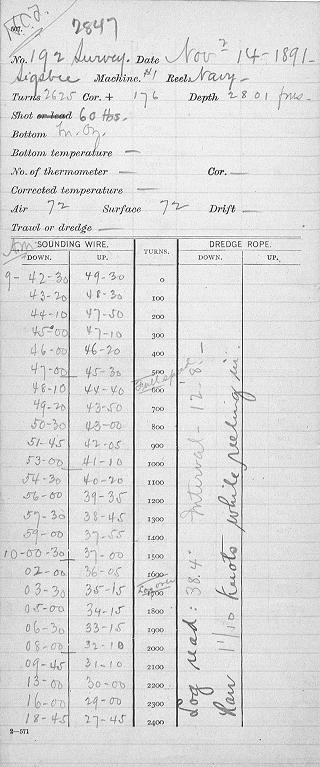 2847
507.
No. 192 Survey. Date Nov 14-1891-
Sigsbee Machine. #1 Reel Navy-
Turns 2625 Cor. + 176 Depth 2801 fms-
Shot or lead 60 lbs.
Bottom
Bottom temperature —
No. of thermometer — Cor. —
Corrected temperature —
Air 72 Surface 72 Drift —
Trawl or dredge —
Am SOUNDING WIRE. TURNS. DREDGE ROPE.
DOWN. UP. DOWN. UP.
9-42-30 49-30 0
43-20 48-30 100
44-10 47-50 200
45-00 47-10 300
46-00 46-20 400
47-00 45-30 500
48-10 44-40 600
49-20 43-50 700
50-30 43-00 800
51-45 42-05 900
53-00 41-10 1000
54-30 40-20 1100
56-00 39-35 1200
57-30 38-45 1300
59-00 37-55 1400
10-00-30 37-00 1500
02-00 36-05 1600
03-30 35-15 1700
05-00 34-15 1800
06-30 33-15 1900
08-00 32-10 2000
09-45 31-10 2100
13-00 30-00 2200
16-00 29-00 2300
18-45 27-45 2400
Log read: 38.4. Interval-12-8.-
Ran 1 1/10 Knots while reeling in.
2—571